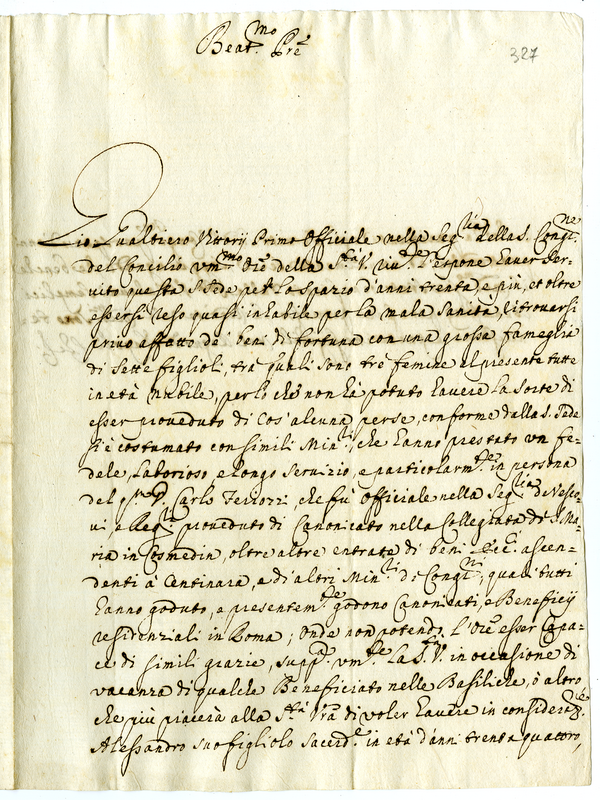 Beat.mo Pre
327
Gio: Gualtiero Vittorij Primo Officiale nella Seg.ria della S. Cong.ne
del Concilio um.mo Ore della S.tà V. riu.te l'espone hauer ser-
uito questa S. Sede per lo spazio d'anni trenta e più, et oltre
essersi reso quasi inhabile per la mala sanità, ritrouarsi
priuo affatto de' beni di fortuna con una grossa fameglia
di sette figlioli, trà quali sono trè femine al presente tutte
in età nubile, perloche non hà potuto hauere la sorte di
esser proueduto di cos'alcuna per se, conforme dalla S. Sede
si è costumato con simili Min.ri, che hanno prestato un fe-
dele, laborioso, e longo seruizio, e particolarm.te in persona
del q.m D. Carlo Terrozzi, che fù Officiale nella Seg.ria de Vesco-
ui, e Reg.ri proueduto di Canonicato nella Collegiata di S. Ma-
ria in Cosmedin, oltre altre entrate di beni Ecc.ci ascen-
denti à Centinara, e di altri Min.ri di Cong.ni, quali tutti
hanno goduto, e presentem.te godono Canonicati, e Beneficij
residenziali in Roma; Onde non potendo l'Ore esser capa-
ce di simili grazie, supp.ca um.te la S.V. in occasione di
vacanza di qualche Beneficiato nelle Basiliche, ò altro
che più piacerà alla S.tà Vra di voler hauere in consideraz.e
Alessandro suo figliolo Sacerd.e in età d'anni trenta quattro,